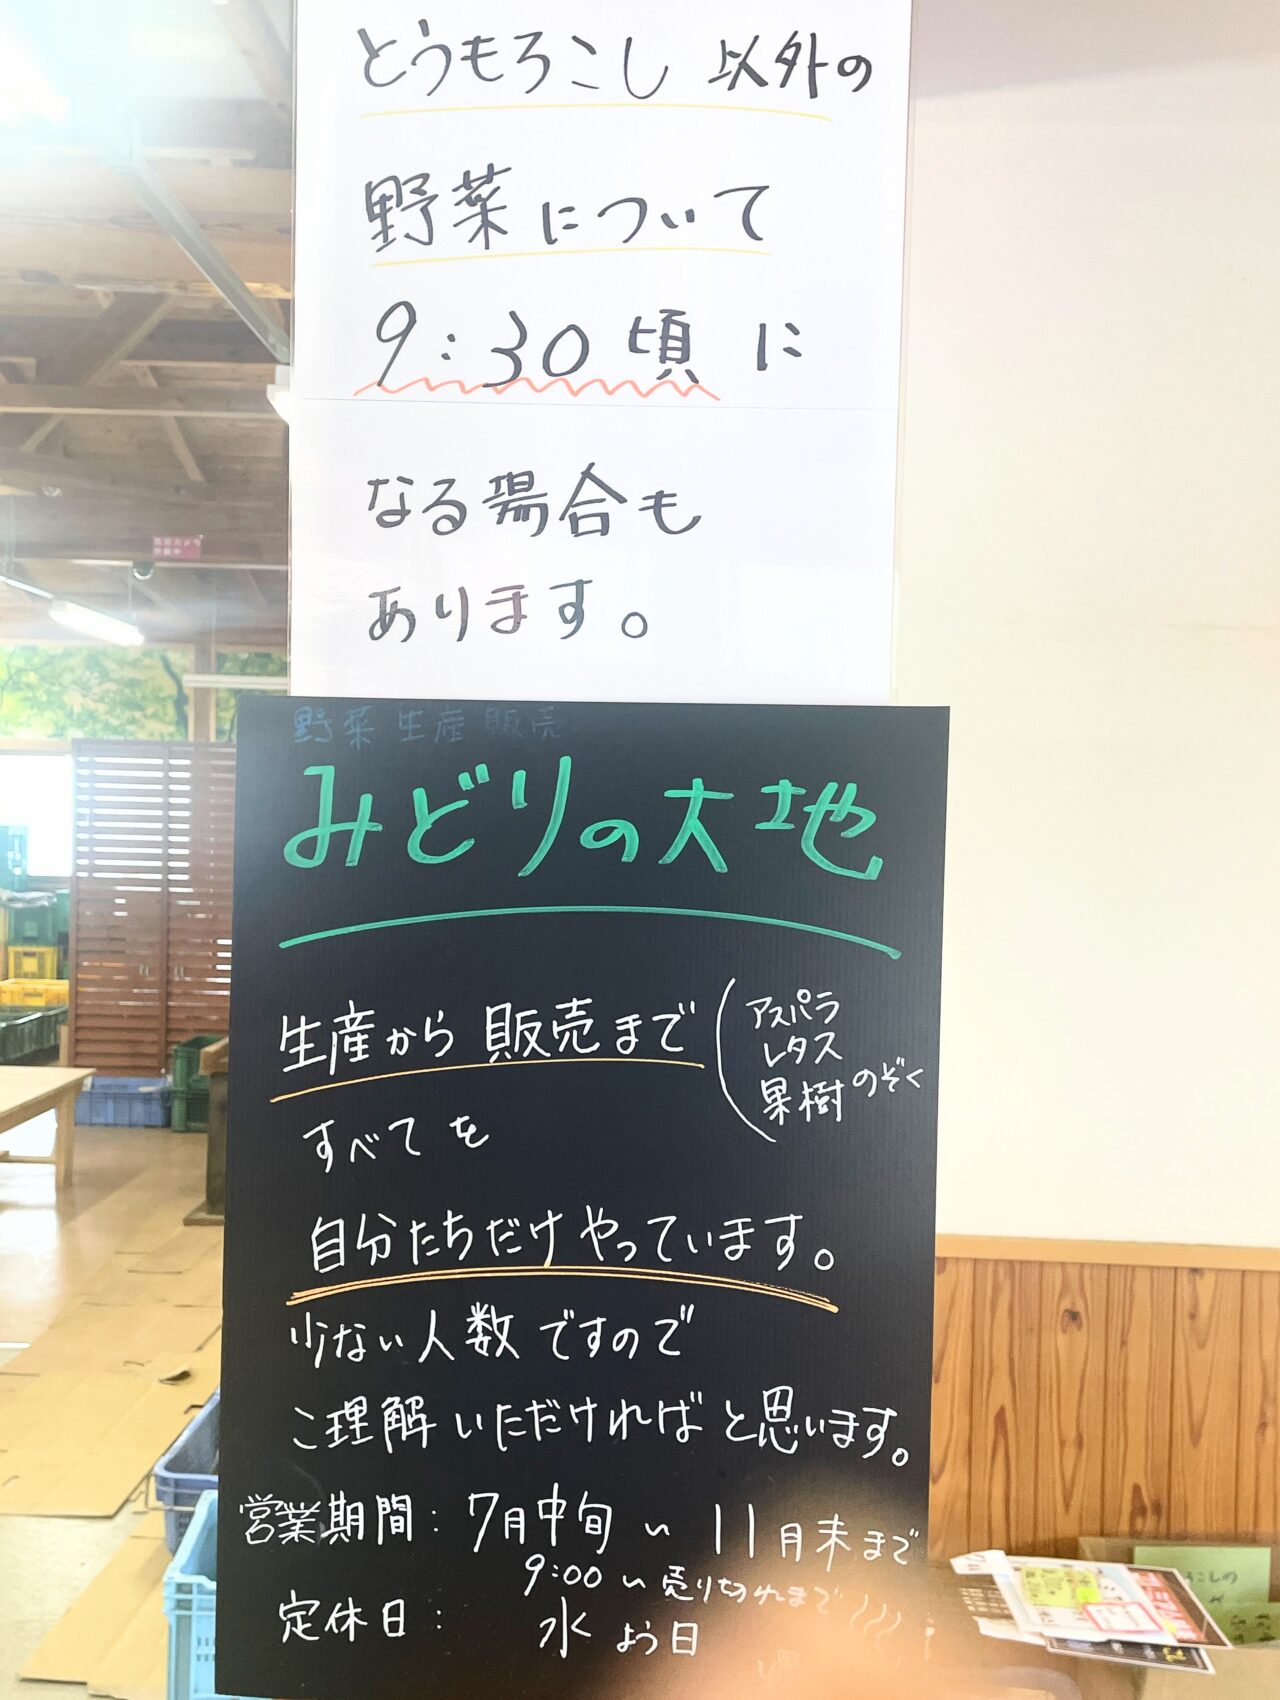 とうもろこし 以外の
野菜について
9:30頃に
なる場合も
あります。
野菜 生産 販売
みどりの大地
生産から販売まで
(アスパラ
レタス
果樹のぞく
すべてを
自分たちだけやっています。
少ない人数ですので
ご理解いただければと思います。
営業期間:7月中旬〜11月末まで
9:00〜売り切れまで
定休日: 水よう日